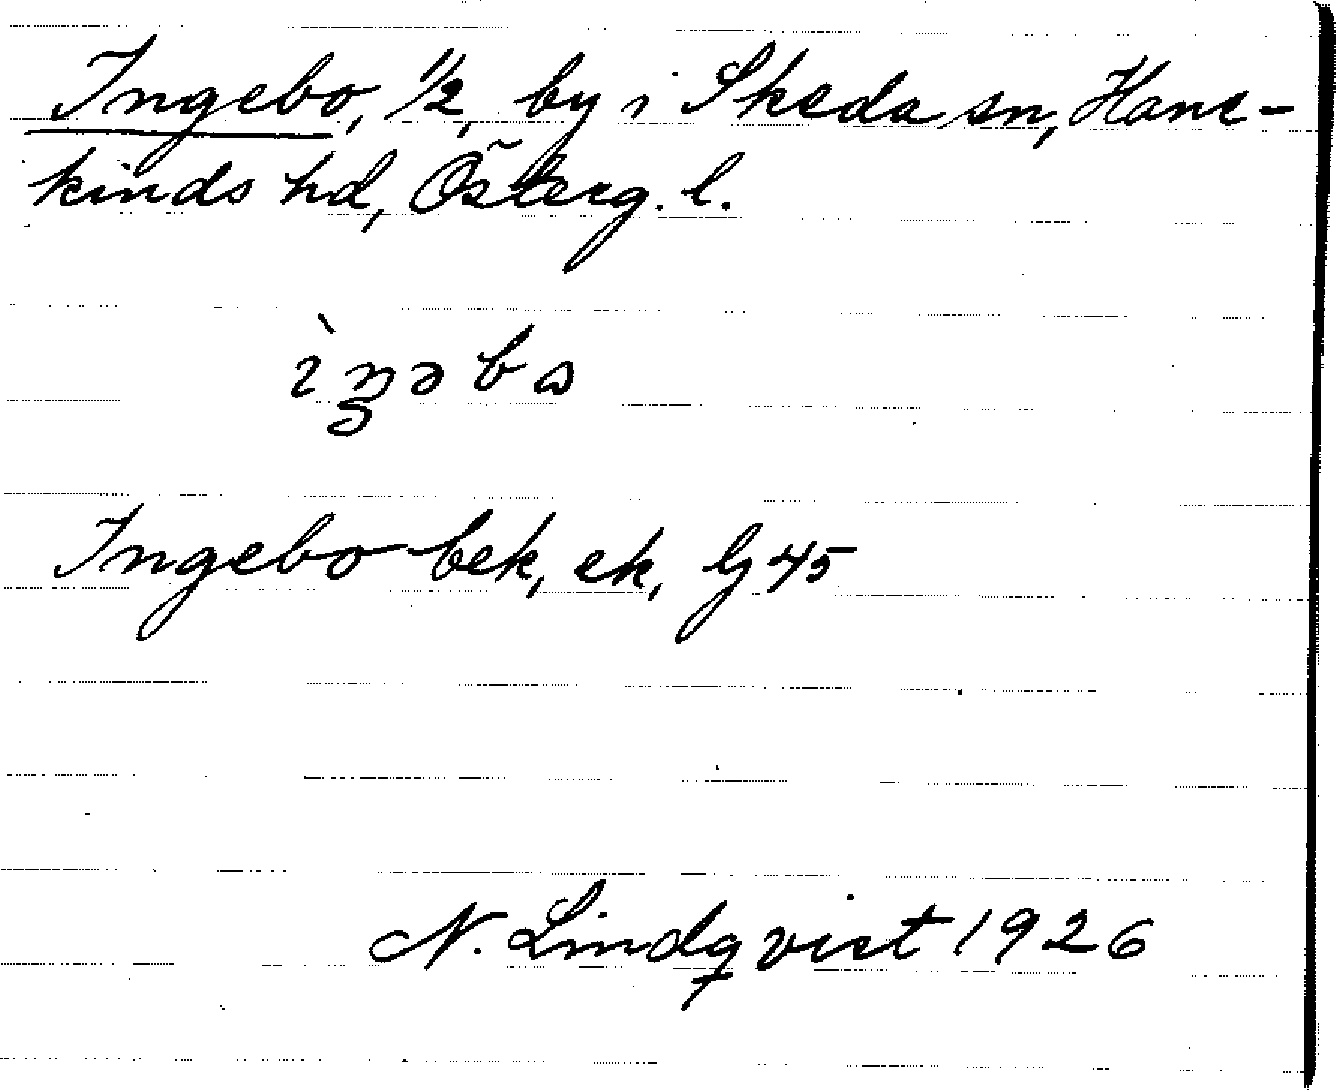 Ingebo, 1/2, by i Skeda sn, Hane-
kinds hd, Österg. l.
ìŋəbɷ
Ingebo bek, ek, Gg 45
N. Lindqvist 1926